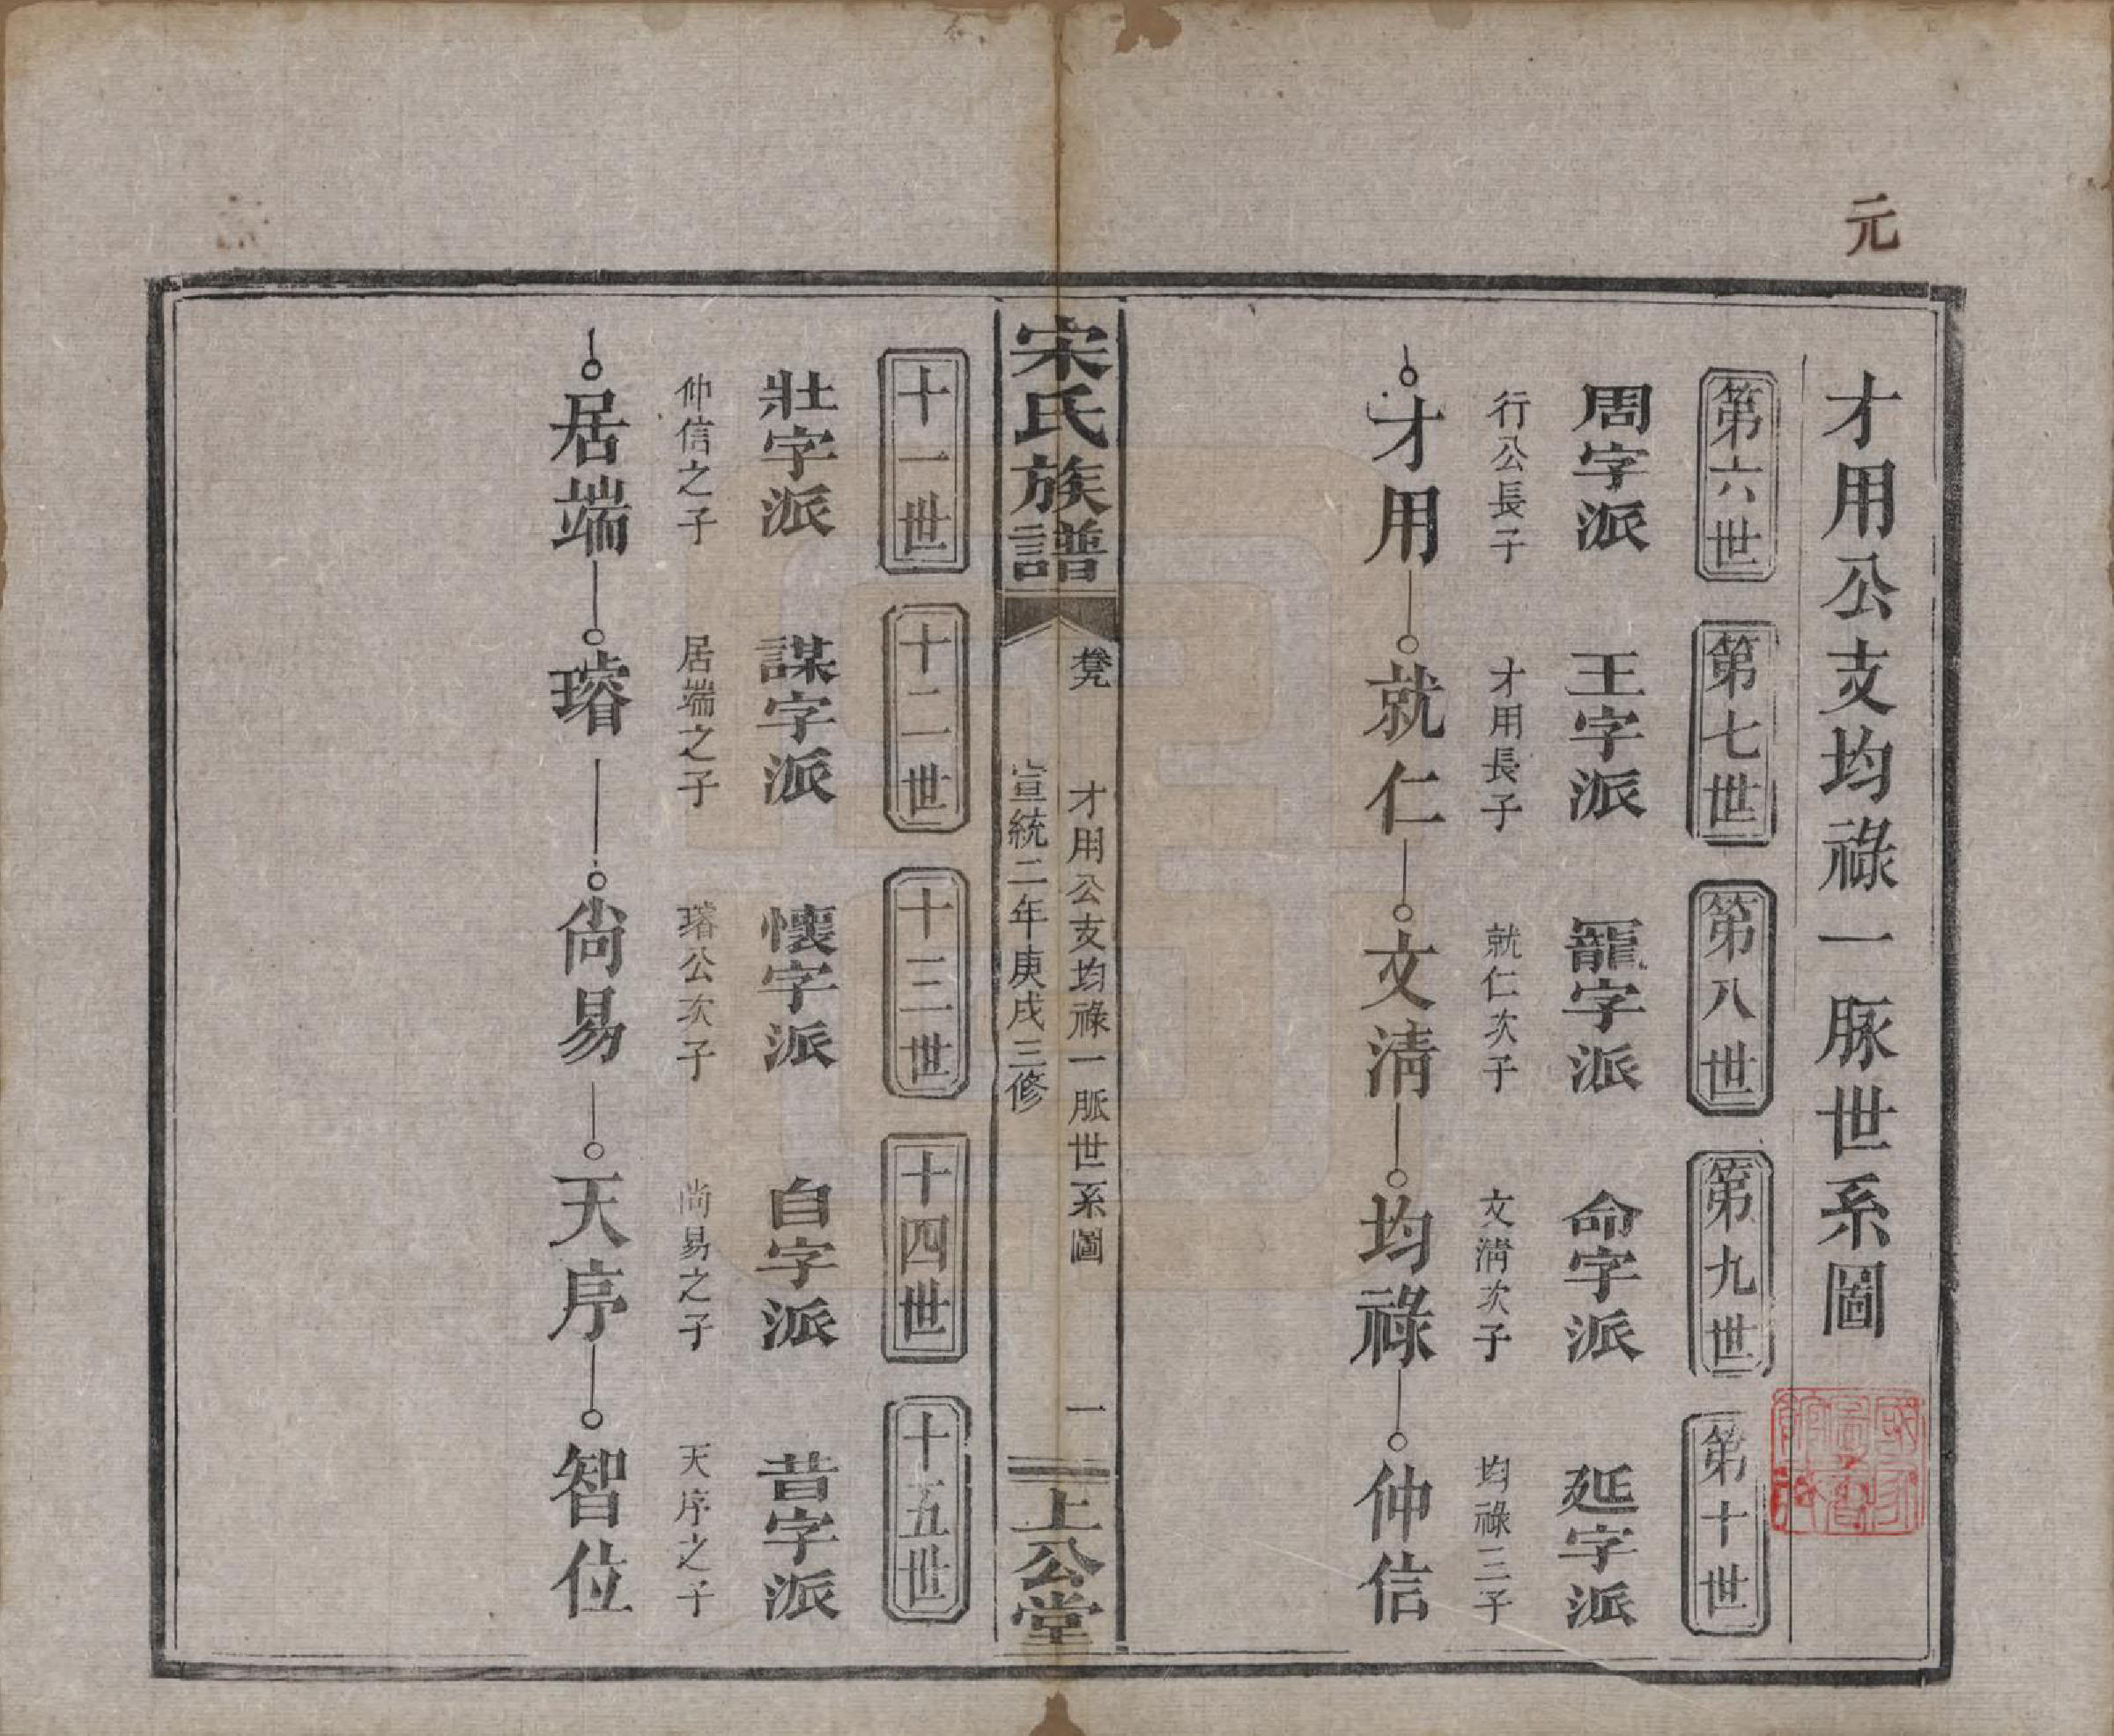 元
才用公支均祿一脉世系圖
第六世
第七世
第八世
第九世
第十世
周字派
王字派
寵字派
命字派
延字派
行公長子
才用長子
就仁次子
文淸次子
均祿三子
才用
就仁
文淸
均祿
仲信
宋氏族譜
才用公支均祿一脈世系圖
一
宣統二年庚戌三修
上公堂
十一世
十二世
十三世
十四世
十五世
壯字派
謀字派
懷字派
自字派
昔字派
仲信之子
居端之子
璿公次子
尙易之子
天序之子
居端
璿
尙易
天序
智位